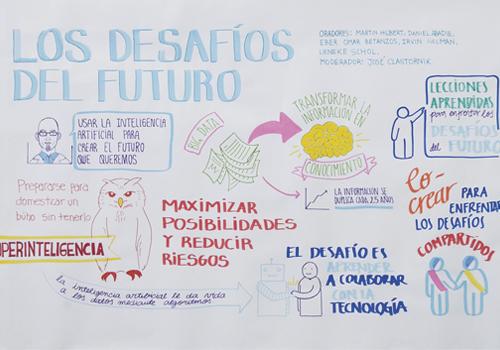 LOS DESAFÍOS
DEL FUTURO
ORADORES: MARTIN HILBERT, DANIEL ABADIE,
EBER OMAR BETANZOS, IRVIN
SCHOL.
MODERADOR: JOSÉ CLASTORNIK
USAR LA INTELIGENCIA
ARTIFICIAL PARA
CREAR EL FUTURO
QUE QUEREMOS
BIG DATA
TRANSFORMAR LA
INFORMACIÓN EN
CONOCIMIENTO
LA INFORMACIÓN SE
DUPLICA CADA 2,5 AÑOS
LECCIONES
APRENDIDAS
para enfrentar los
DESAFÍOS
del FUTURO
Prepararse para
domesticar un
búho sin tenerlo
PERINTELIGENCIA
MAXIMIZAR
POSIBILIDADES
Y REDUCIR
RIESGOS
la inteligencia artificial le da vida
a los datos mediante algoritmos
EL DESAFÍO ES
APRENDER
A COLABORAR
CON LA
TECNOLOGÍA
Co-
crear PARA
ENFRENTAR
LOS DESAFÍOS
COMPARTIDOS